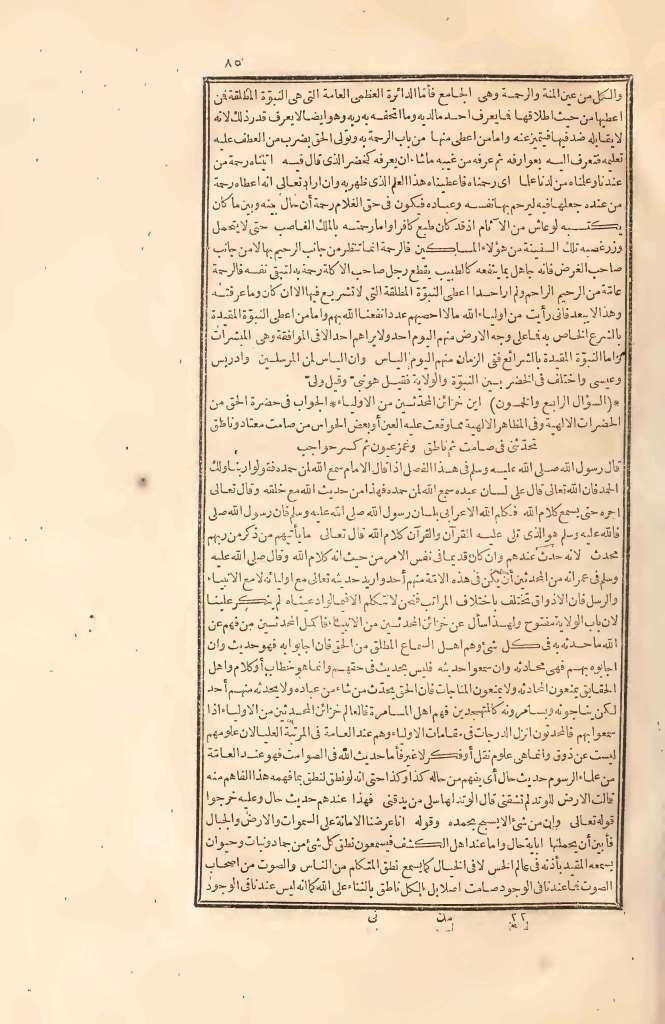 ٨٥
والكل من عين المنة والرحمة وهى الجامع فأما الدائرة العظمى العامة التى هى النبوّة المطلقة فمن
اعطيها من حيث اطلاقها فما يعرف احد مالديه وما اتحفه به ربه وهو ايضا لا يعرف قدر ذلك لانه
لا يقابله ضد فيها فيتميز عنه وامامن اعطى منها من باب الرحمة به وتولى الحق بضرب من العطف عليه
تعليمه فتعرف اليه بعوارفه ثم عرفه من غيبه ماشاء ان يعرفه كخضر الذى قال فيه اتيناه رحمة من
عندنا وعلمناه من لدنا علما اى رحمناه فاعطيناه هذا العلم الذى ظهر به وان اراد تعالى انه اعطاه رحمة
من عنده جعلها فيه ليرحم بها نفسه وعباده فيكون فى حق الغلام رحمة أن حال بينه وبين ما كان
يكتسبه لوعاش من الآثام اذ قد كان طبع كافرا وامارحمته بالملك الغاصب حتى لا يتحمل
وزر غصبه تلك السفينة من هؤلاء المساكين فالرحمة انما تنظر من جانب الرحيم بها لا من جانب
صاحب الغرض فانه جاهل بما ينفعه كالطبيب يقطع رجل صاحب الاكلة رحمة به لتبقى نفسه فالرحمة
عامّة من الرحيم الراحم ولم ار احدا اعطى النبوّة المطلقة التى لا تشريع فيها الا ان كان وما عرفته
وهذا لا يبعد فانى رأيت من اولياء الله مالا احصيهم عددا نفعنا الله بهم وامامن اعطى النبوّة المقيدة
بالشرع الخاص به فما على وجه الارض منهم اليوم احد ولا يراهم احد الا فى الموافقة وهى المبشرات
واما النبوّة المقيدة بالشرائع ففى الزمان منهم اليوم الياس وان الياس لمن المرسلين وادريس
وعيسى واختلف فى الخضر بين النبوّة والولاية فقيل هو نبىّ وقيل ولىّ
*(السؤال الرابع والخمسون) اين خزائن المحدّثين من الاولياء* الجواب فى حضرة الحق من
الحضرات الالهية وفى المظاهر الالهية بما وقعت عليه العين أو بعض الحواس من صامت معتاد وناطق
تحدّثنى فى صامت ثم ناطق وغمز عيون ثم كسر حواجب
قال رسول الله صلى الله عليه وسلم فى هذا الفصل اذا قال الامام سمع الله لمن حمده فقولوا ربنا ولك
الحمد فان الله تعالى قال على لسان عبده سمع الله لمن حمده فهذا من حديث الله مع خلقه وقال تعالى
اجره حتى يسمع كلام الله فكلم الله الاعرابى بلسان رسول الله صلى الله عليه وسلم فان رسول الله صلى
الله عليه وسلم هو الذى تلى عليه القرآن والقرآن كلام الله قال تعالى ما يأتيهم من ذكر من ربهم
محدث لانه حدث عندهم وان كان قديما فى نفس الامر من حيث انه كلام الله وقال صلى الله عليه
وسلم فى عمر انه من المحدثين أن يكن فى هذه الامّة منهم أحد واريد حديثه تعالى مع اوليائه لامع الانبياء
والرسل فان الاذواق تختلف باختلاف المراتب فنحن لا نتكلم الا فيما لو ادعيناه لم ينكر علينا
لان باب الولاية مفتوح ولهذا سأل عن خزائن المحدّثين من الانبياء فاكمل المحدثين من فهم عن
الله ما حدثه به فى كل شئ وهم اهل السماع المطلق من الحق فان اجابوا به فهو حديث وان
اجابوه بهم فهى محادثه وان سمعوا حديثه فليس بحديث فى حقهم وانما هو خطاب أو كلام واهل
الحقايق يمنعون المحادثه ولا يمنعون المناجات فان الحق يحدّث من شاء من عباده ولا يحدثه منهم أحد
لكن يناجونه ويسامرونه كالمتهجدين فهم اهل المسامرة فالعالم خزائن المحدّثين من الاولياء اذا
سمعوا بهم فالمحدّثون انزل الدرجات فى مقامات الاولياء وهم عند العامة فى المرتبة العليا لان علومهم
ليست عن ذوق وانما هى علوم نقل أو فكر لا غير فأما حديث الله فى الصوامت فهو عند العامّة
من علماء الرسوم حديث حال أى يفهم من حاله كذا وكذا حتى انه لو نطق لنطق بما فهمه هذا الفاهم منه
قالت الارض للوتد لم تشقنى قال الوتد لها سلى من يدقنى فهذا عندهم حديث حال وعليه خرجوا
قوله تعالى وان من شئ الا يسبح بحمده وقوله انا عرضنا الامانة على السموات والارض والجبال
فأبين أن يحملنها اباية حال واما عند اهل الكشف فيسمعون نطق كل شئ من جماد ونبات وحيوان
يسمعه المقيد بأذنه فى عالم الحس لا فى الخيال كما يسمع نطق المتكلم من الناس والصوت من اصحاب
الصوت فما عندنا فى الوجود صامت اصلا بل الكل ناطق بالثناء على الله كما انه ليس عندنا فى الوجود
٢٢